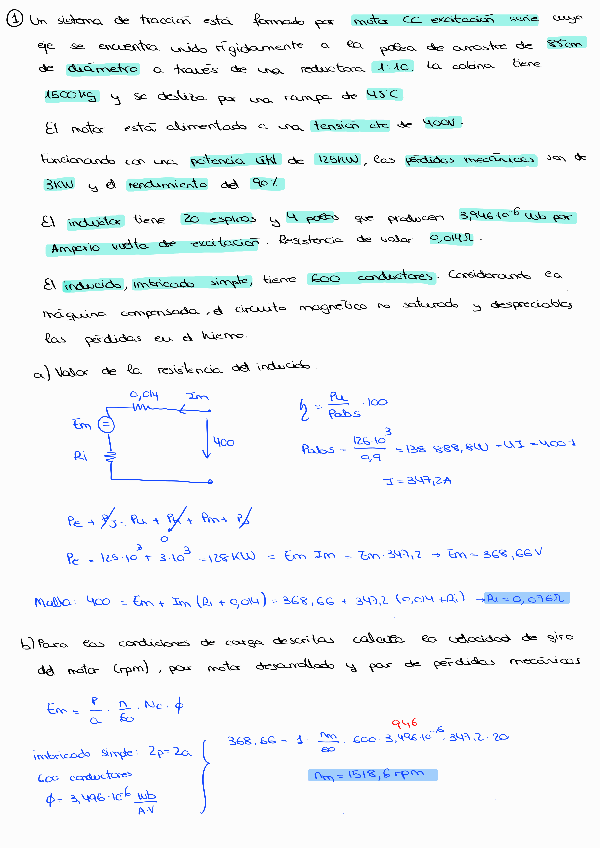 ① Un sistema de tracción está formado por motor CC excitación serie cuyo
eje se encuentra unido rígidamente a la polea de arrastre de 35cm
de diámetro a través de una reductora 1:10. La cabina tiene
1500Kg y se desliza por una rampa de 45ºC
El motor está alimentado a una tensión cte de 400V.
Funcionando con una potencia útil de 125KW, las pérdidas mecánicas son de
3KW y el rendimiento del 90%
El inductor tiene 20 espiras y 4 polos que producen 3,946·10⁻⁶ wb por
Amperio vuelta de excitación. Resistencia de valor 0,014Ω.
El inducido, imbricado simple, tiene 600 conductores. Considerando la
máquina compensada, el circuito magnético no saturado y despreciables
las pérdidas en el hierro.
a) Valor de la resistencia del inducido.
0,014 Im
Em
Ri
400
η = Pu/Pabs · 100
Pabs = 125·10³/0,9 = 138.888,8W = UI = 400·I
I = 347,2A
PE + PJ = Pu + PH + Pm + PJ
0
PE = 125·10³ + 3·10³ = 128KW = Em Im = Em·347,2 → Em = 368,66V
Malla: 400 = Em + Im (Ri + 0,014) = 368,66 + 347,2 (0,014 + Ri) → Ri = 0,076Ω
b) Para las condiciones de carga descritas calcula la velocidad de giro
del motor (rpm), par motor desarrollado y par de pérdidas mecánicas
Em = P/a · n/60 · Nc · φ
946
imbricado simple: 2p=2a
600 conductores
φ = 3,496·10⁻⁶ wb/A·V
368,66 = 1 · nm/60 · 600 · 3,496·10⁻⁶ · 347,2 · 20
nm = 1518,6 rpm